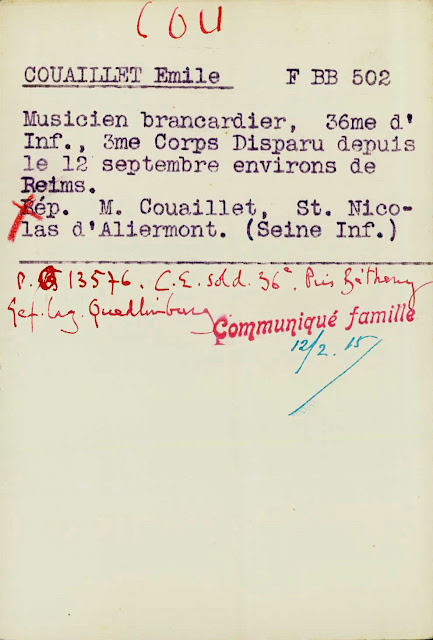 COU
COUAILLET Emile F BB 502
Musicien brancardier, 36me d'
Inf., 3me Corps Disparu depuis
le 12 septembre environs de
Reims.
Rép. M. Couaillet, St. Nico-
las d'Aliermont. (Seine Inf.)
P. 13576. C.E. sold. 36e. Pris Bétheny
Gef. Lag. Quedlinburg
Communiqué famille
12/2. 15